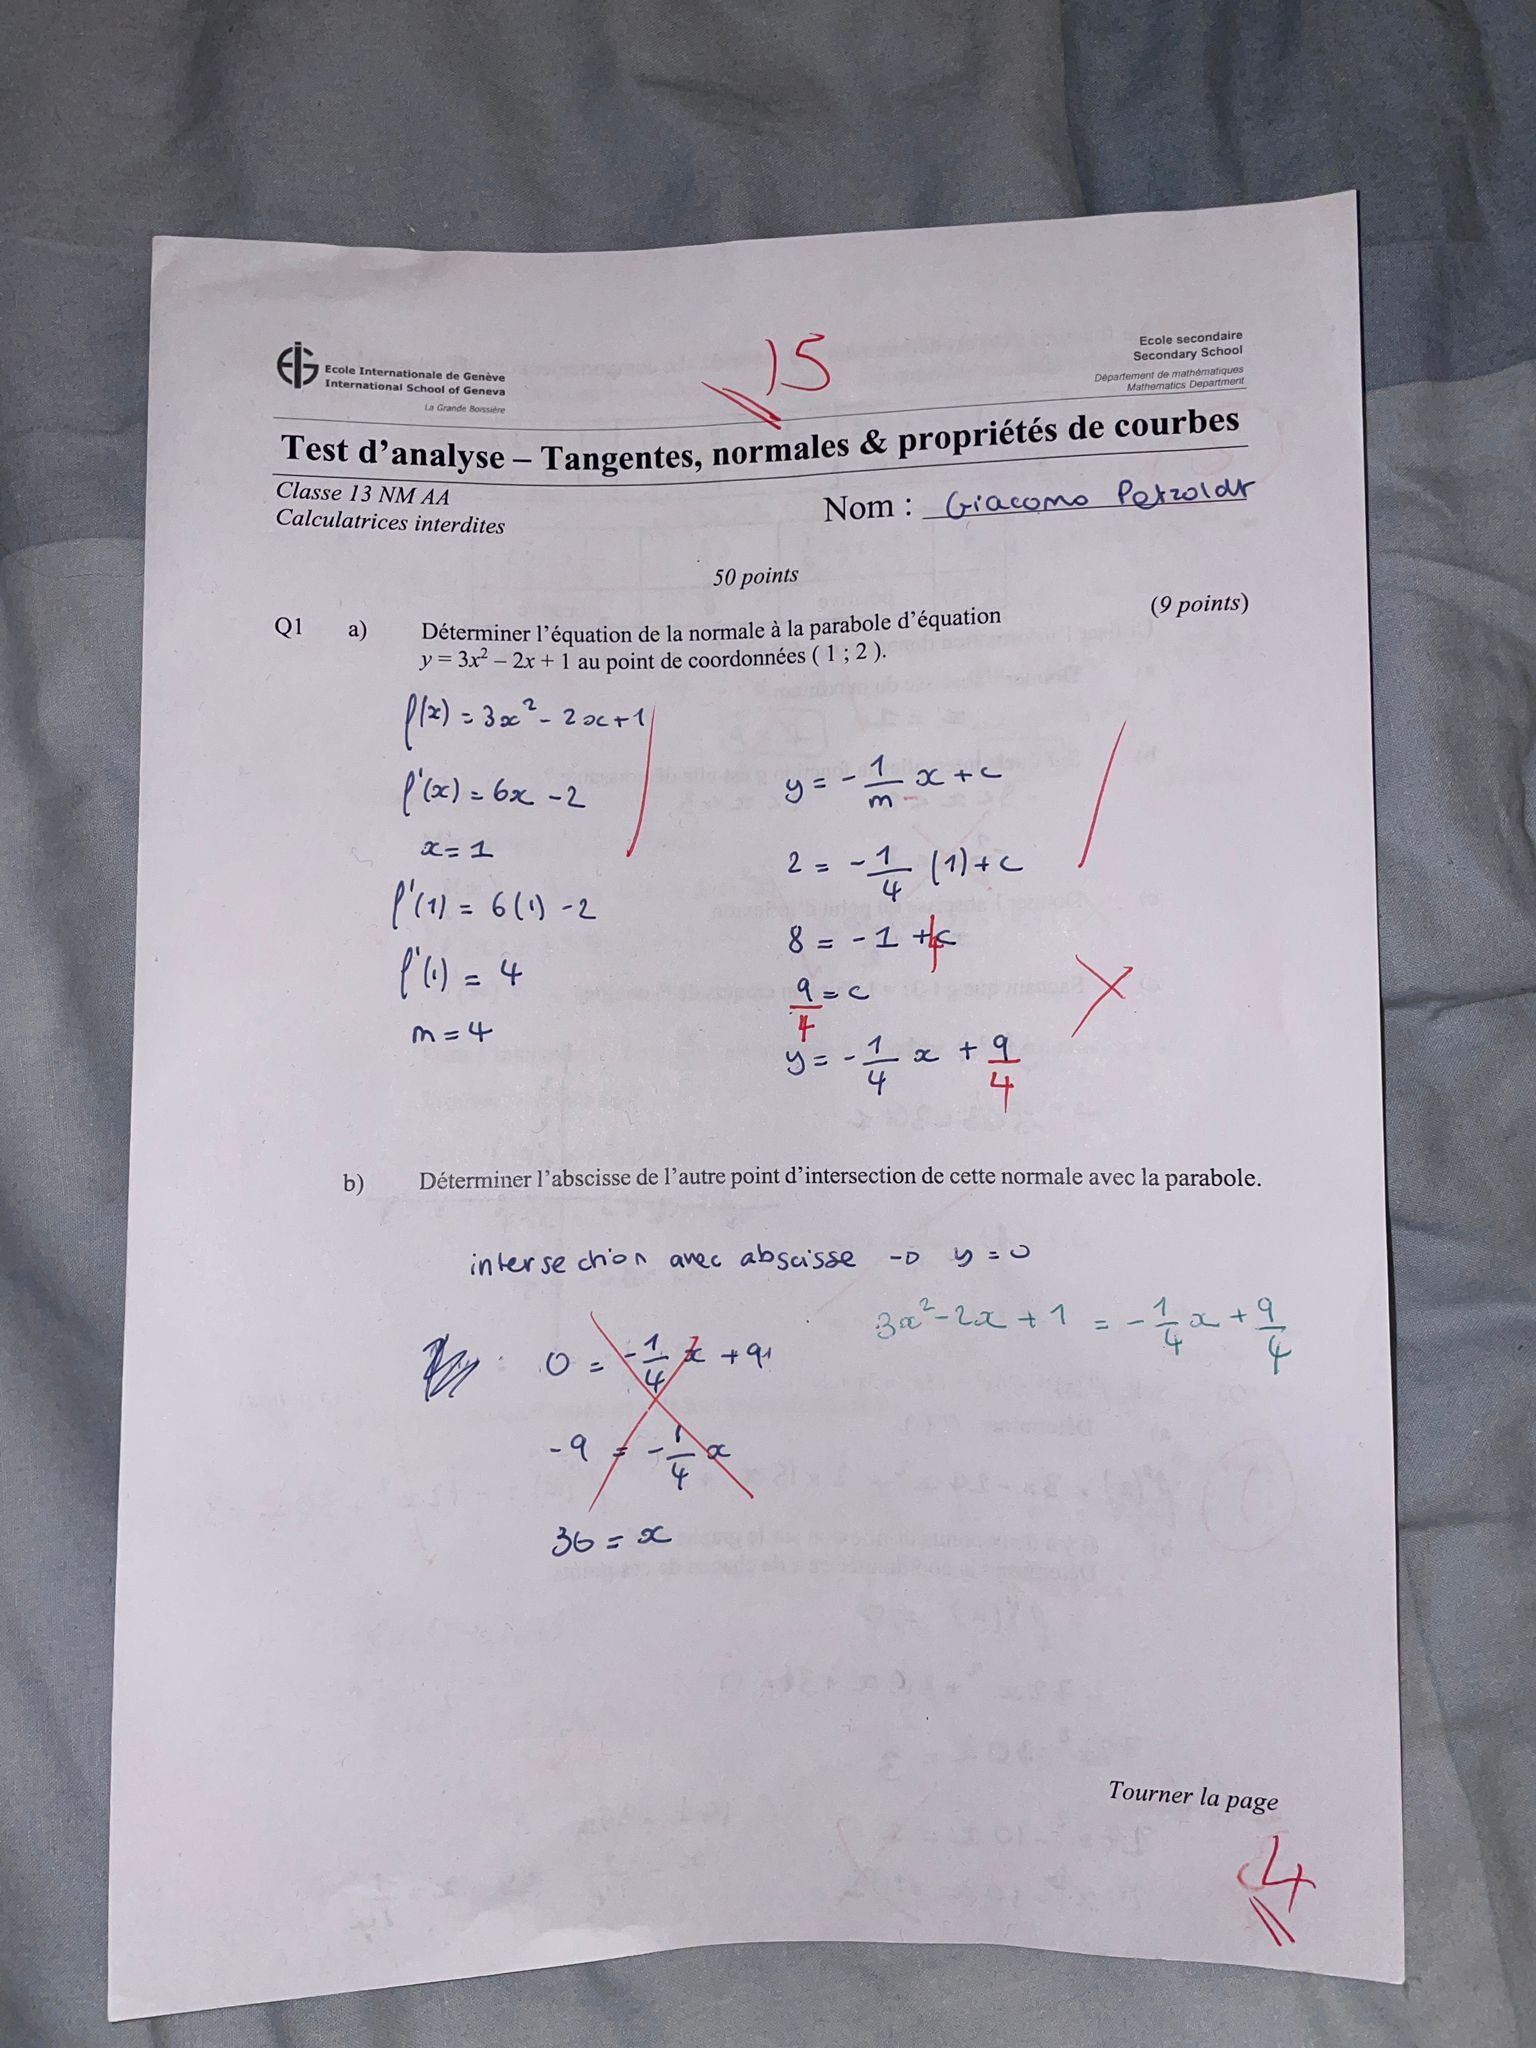 15
Ecole Internationale de Genève
International School of Geneva
La Grande Boissière
Ecole secondaire
Secondary School
Département de mathématiques
Mathematics Department
Test d'analyse – Tangentes, normales & propriétés de courbes
Classe 13 NM AA
Calculatrices interdites
Nom : Giacomo Petzoldt
50 points
Q1 a) Déterminer l'équation de la normale à la parabole d'équation (9 points)
y = 3x² – 2x + 1 au point de coordonnées ( 1 ; 2 ).
f(x) = 3x² - 2x + 1
f'(x) = 6x - 2
x = 1
f'(1) = 6(1) - 2
f'(1) = 4
m = 4
y = - 1/m x + c
2 = - 1/4 (1) + c
8 = - 1 + 4c
9/4 = c
y = - 1/4 x + 9/4
b) Déterminer l'abscisse de l'autre point d'intersection de cette normale avec la parabole.
intersection avec abscisse → y = 0
3x² - 2x + 1 = - 1/4 x + 9/4
0 = - 1/4 x + 9
-9 = - 1/4 x
36 = x
Tourner la page
4